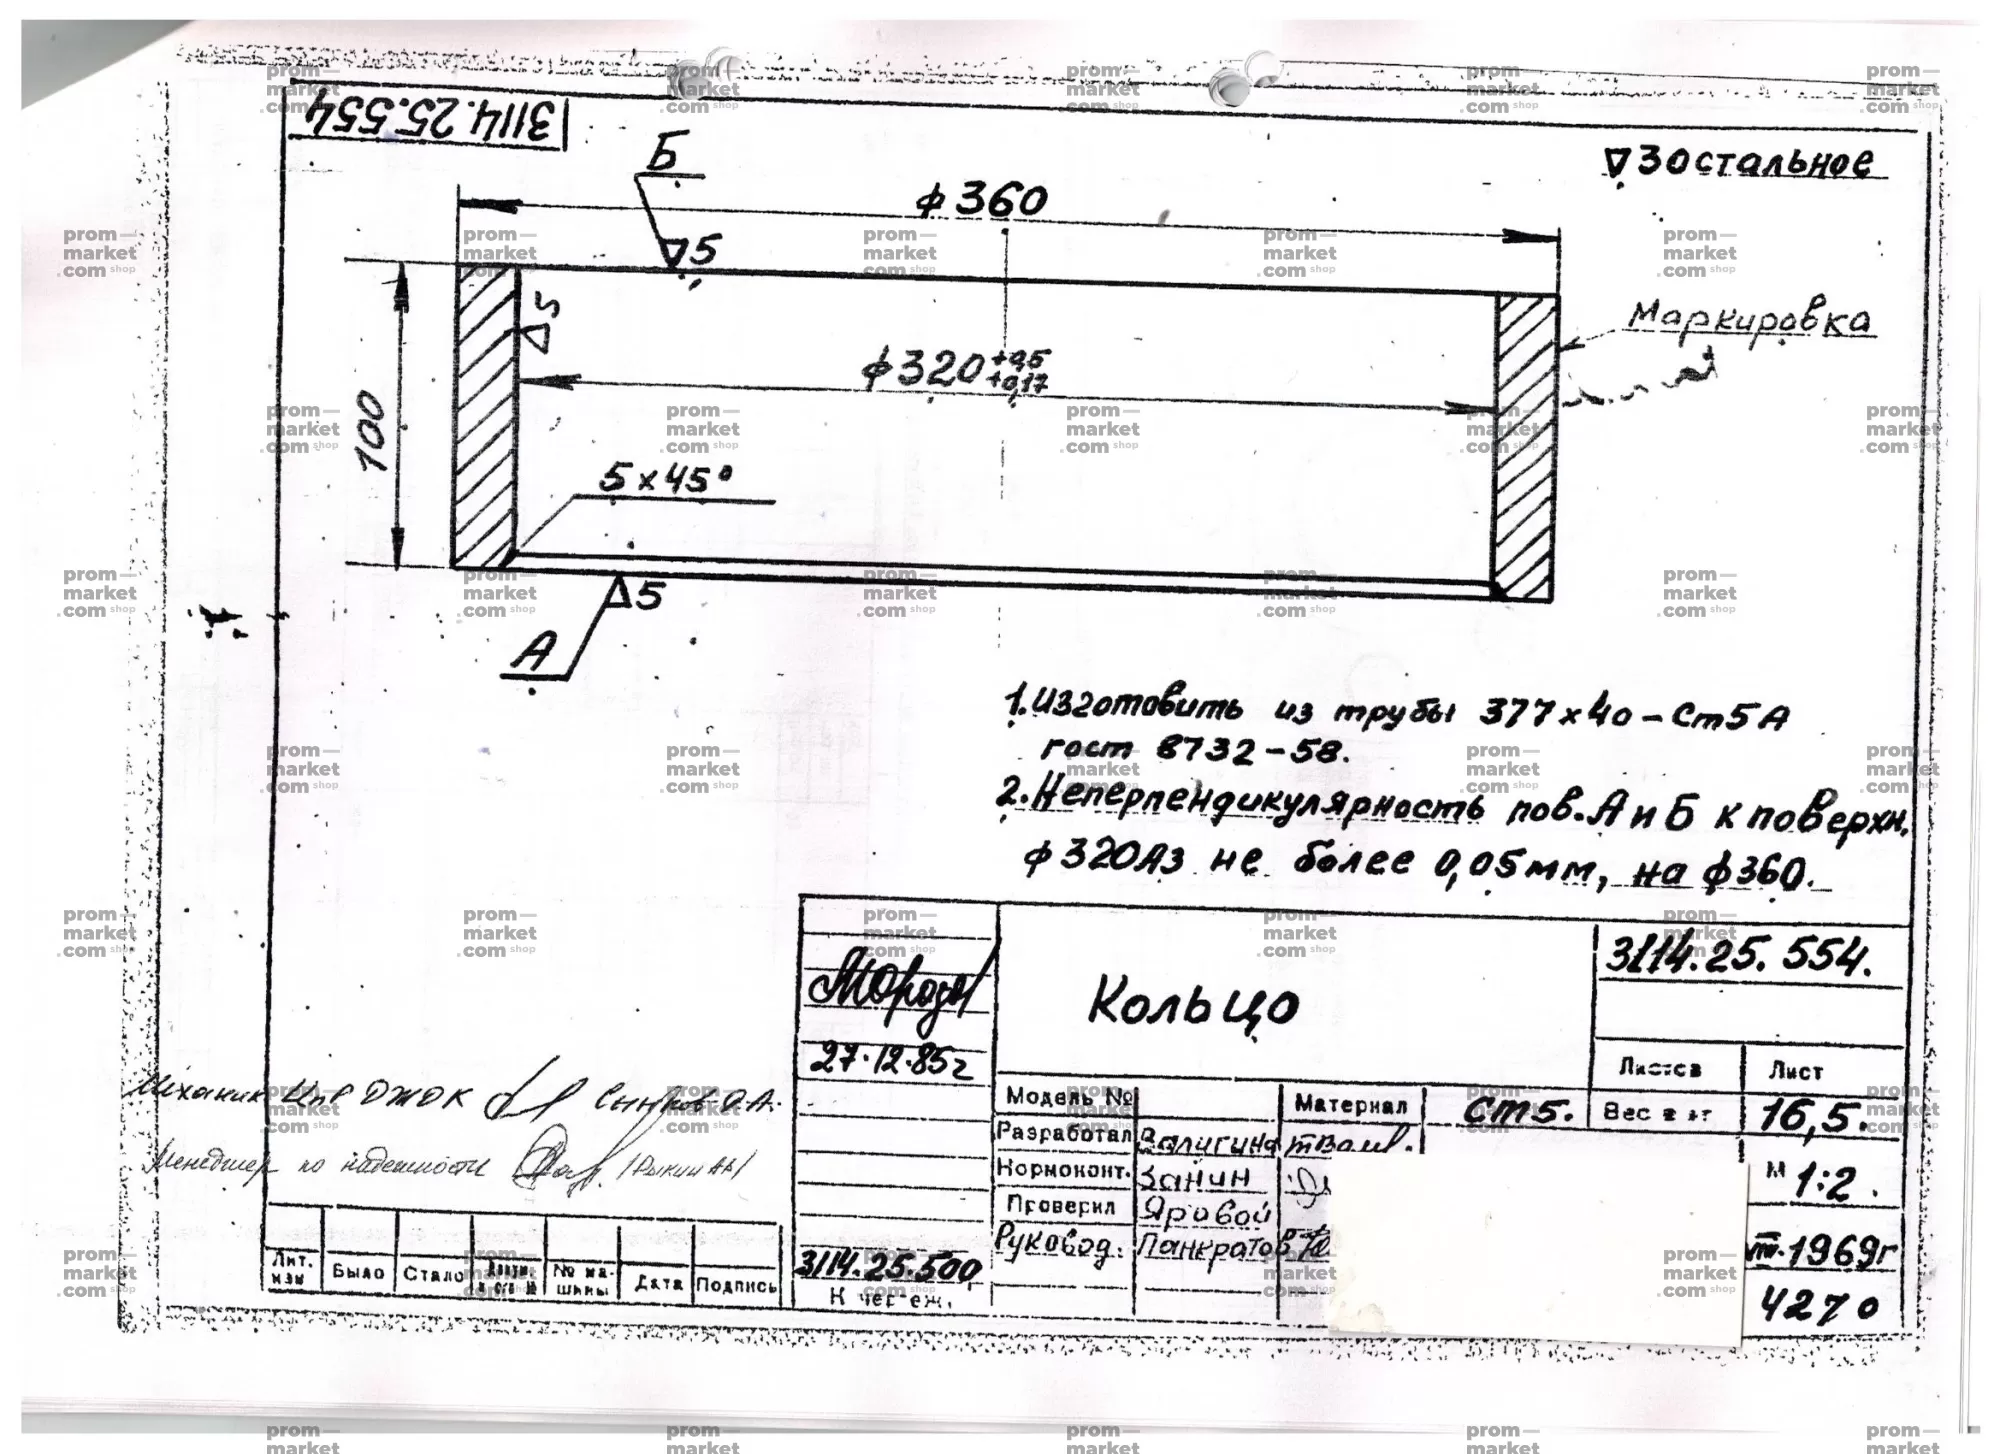 3114.25.554
Б
▽3 остальное
ф360
▽5
▽5
Маркировка
ф320 +0,5 +0,17
100
5×45°
▽5
А
1. Изготовить из трубы 377×40-Ст5А
гост 8732-58.
2. Неперпендикулярность пов. А и Б к поверхн.
ф320А3 не более 0,05мм, на ф360.
3114.25.554.
Кольцо
27.12.85г
Листов Лист
Модель № Материал Ст5. Вес в кг 16,5.
Разработал
Нормоконт. Занин
М 1:2.
Проверил Яровой
Руковод. Панкратов
1969г
4270
Механик ЦПР ДЖДК
Менеджер по надежности
Лит. изм Было Стало № ма-шины Дата Подпись
3114.25.500
К чертеж.
prom-market.com shop